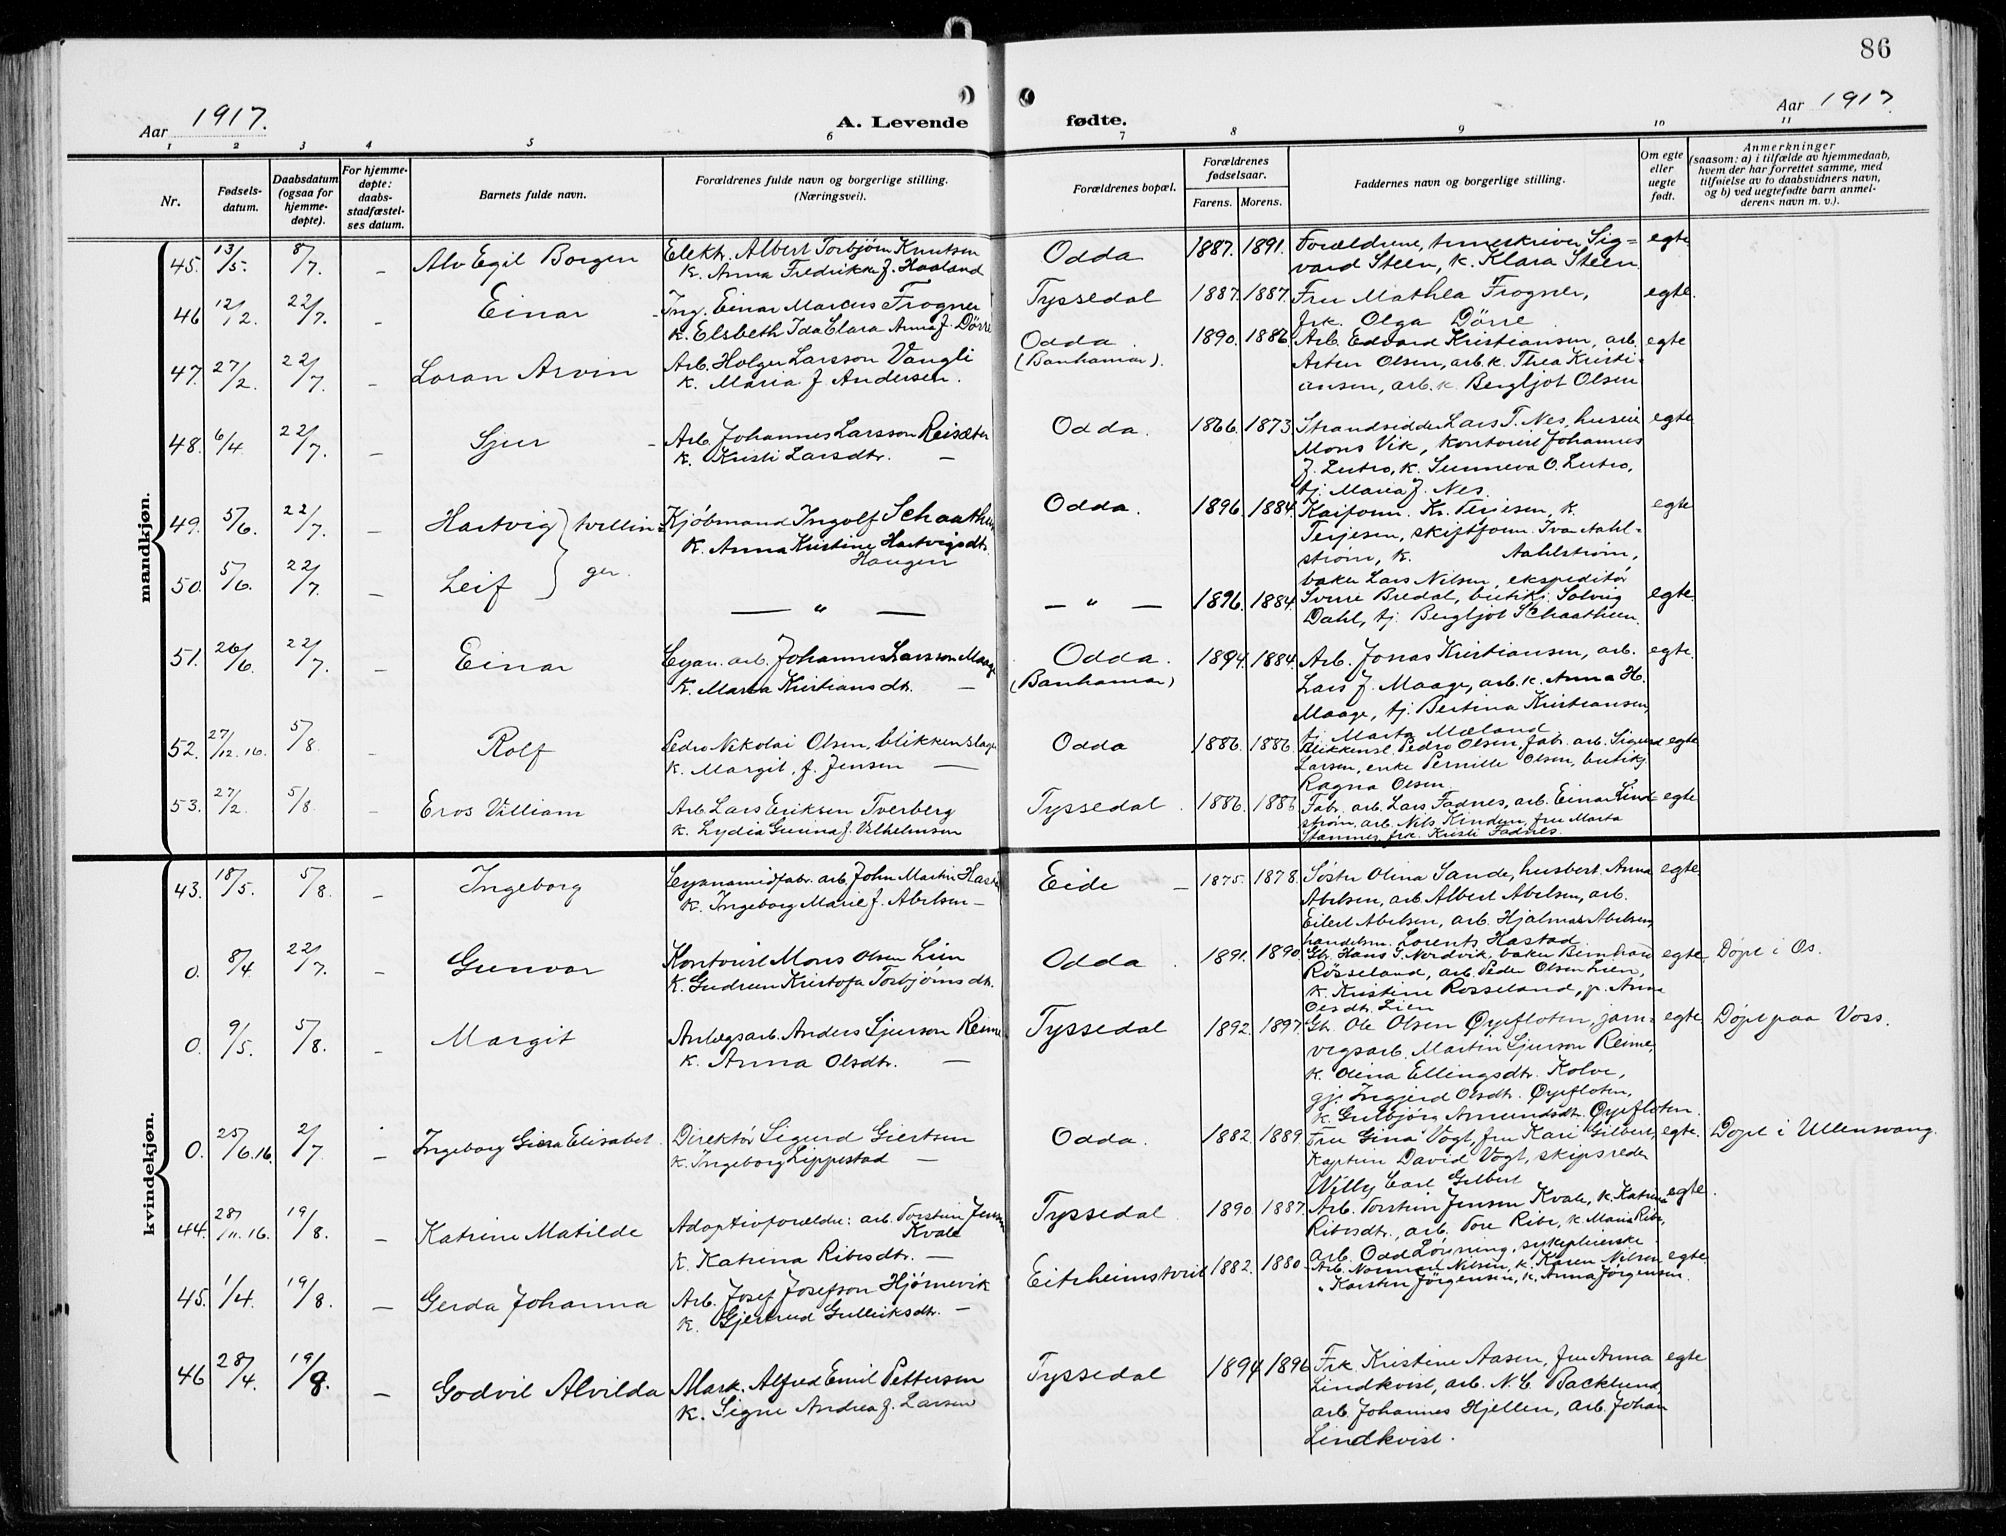 86
Aar 1917.
A. Levende
fødte.
Aar 1917.
1 2 3 4 5 6 7 8 9 10 11
Nr.
Fødsels-
datum.
Daabsdatum
(ogsaa for
hjemme-
døpte).
For hjemme-
døpte:
daabs-
stadfæstel-
ses datum.
Barnets fulde navn.
Forældrenes fulde navn og borgerlige stilling.
(Næringsvei).
Forældrenes bopæl.
Forældrenes
fødselsaar.
Farens. Morens.
Faddernes navn og borgerlige stilling.
Om egte
eller
uegte
født.
Anmerkninger
(saasom: a) i tilfælde av hjemmedaab,
hvem der har forrettet samme, med
tilføielse av to daabsvidners navn,
og b) ved uegtefødte barn anmel-
derens navn m. v.).
mandkjøn.
45. 13/5. 8/7. - Alv Egil Borgen
Elektr. Albert Torbjørn Knutsen
k. Anna Fredrikke J. Haaland
Odda 1887. 1891.
Forældrene, timeskriver Sig-
vard Steen, k. Klara Steen
egte
46 12/12. 22/7. - Einar
Ing. Einar Marcus Frogner
k. Elsbeth Ida Clara Anna J. Dörre
Tyssedal 1887. 1887.
Fru Mathea Frogner,
frk. Olga Dörre.
egte.
47. 27/2. 22/7. - Loran Arvin
Arb. Holger Larsson Vangli
k. Maria J. Andersen.
Odda.
(Banhamar).
1890. 1886.
Arb. Edvard Kristiansen, arb.
Arten Olsen, arb. k. Thea Kristi-
ansen, arb. k. Bergljot Olsen
egte
48. 6/4 22/7. - Sjur
Arb. Johannes Larsson Reisæter
k. Kristi Larsdtr. -
Odda. 1866. 1873
Strandsidder Lars T. Nes, huseie
Mons Vik, kontorist Johannes
J. Lutro, k. Sunneva O. Lutro,
tj. Maria J. Nes.
egte
49. 5/6. 22/7. - Hartvig } tvillin-
Kjøbmand Ingolf Schaathun
k. Anna Kristine Hartvigsdtr.
Haugen
Odda. 1896. 1884.
Kaiform. Kr. Terjesen, k.
Terjesen, skiftform. Ivar Aahl-
strøm, k. Aahlstrøm,
baker Lars Nilsen, ekspeditør
egte
50. 5/6. 22/7. - Leif } ger.
— " —
— " — 1896. 1884.
Sverre Bredal, butikj. Solvig
Dahl, tj. Bergljot Schaathun.
egte.
51. 26/6 22/7. - Einar
Cyan. arb. Johannes Larsson Maage
k. Marta Kristiansdtr. -
Odda.
(Banhamar)
1894. 1884.
Arb. Jonas Kristiansen, arb.
Lars J. Maage, arb. k. Anna H.
Maage, tj. Bertina Kristiansen,
tj. Marta Mæland
egte.
52. 27/12. 16. 5/8. - Rolf
Pedro Nikolai Olsen, blikkenslager
k. Margit, J. Jensen -
Odda 1886. 1886.
Blikkensl. Pedro Olsen, fabr. arb. Sigurd
Larsen, enke Pernille Olsen, butikj.
Ragna Olsen
egte
53. 27/2. 5/8 - Eros Villiam
Arb. Lars Eriksen Tverberg
k. Lydia Gunna J. Vilhelmsen
Tyssedal. 1886. 1886
Fabr. arb. Lars Fadnes, arb. Einar Lind-
strøm, arb. Nils Kindem, fru Marta
Stamnes, frk. Kristi Fadnes.
egte
kvindekjøn.
43. 18/5. 5/8. - Ingeborg
Cyanamidfabr. arb. John Martin Hastad
k. Ingeborg Marie J. Abelsen -
Eide - 1875. 1878.
Søster Olina Sande, husbest. Anna
Abelsen, arb Albert Abelsen, arb.
Eilert Abelsen, arb. Hjalmar Abelsen,
handelsm. Lorents Hastad
egte.
0. 8/4. 22/7. - Gunvor
Kontorist Mons Olsen Lien
k. Gudrun Kristofa Torbjørnsdtr.
Odda. 1891. 1890.
Gbr. Hans J. Nordvik, baker Bernhard
Røsseland, arb. Peder Olsen Lien,
k. Kristine Rosseland, p. Anna
Olsdtr. Lien
egte. Døpt i Os.
0. 9/5. 5/8. - Margit
Anlegsarb. Anders Sjurson Reime
k. Anna Olsdtr. -
Tyssedal 1892. 1897.
Gb. Ole Olsen Øypfloten, jern-
vegsarb. Martin Sjurson Reime,
k. Olina Ellingsdtr. Kolve,
gj. Ingjerd Olsdtr. Øypfloten,
k. Gulbjörg Amundsdtr. Øypfloten.
egte Døpt paa Voss.
0. 25/6. 16. 2/7. - Ingeborg Giera Elisabet.
Direktør Sigurd Giertsen
k. Ingeborg Lippestad -
Odda. 1882. 1889.
Fru Gina Vogt, fru Kari Gilbert,
Kaptein David Vogt, skipsreder
Willy Carl Gilbert
egte. Døpt i Ullensvang.
44. 28/11. 16. 19/8. - Katrine Matilde
Adoptivforældre: arb. Torstein Jensen
Kvale
k. Katrina Ribesdtr. -
Tyssedal. 1890. 1887.
Arb. Torstein Jensen Kvale, k. Katrina
Ribesdtr., arb. Tore Ribe, k. Maria Ribe,
arb. Odd Lövning, sykepleierske
egte.
45. 1/4. 19/8. - Gerda Johanna
Arb. Josef Josefson Hjørnevik
k. Gjertrud Gulleiksdtr. -
Eitrheimstræet 1882. 1880
Arb. Norman Nilsen, k. Karen Nilsen
" Karsten Jörgensen, k. Anna Jörgensen.
egte
46 28/4. 19/8. - Godvil Alvilda
Mark. Alfred Emil Pettersen
k. Signe Andrea J. Larsen
Tyssedal 1894 1896
Frk Kristine Aasen, fru Anna
Lindkvist, arb. N. C. Backlund,
arb. Johannes Hjellen, arb. Johan
Lindkvist.
egte